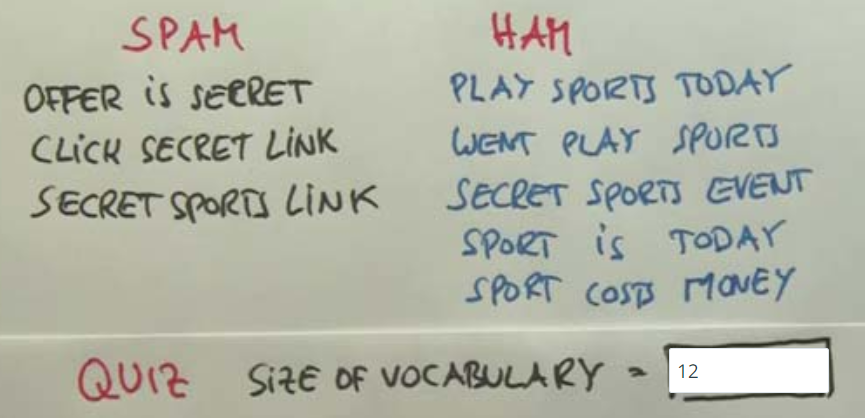 SPAM
OFFER iS SECRET
CLiCK SECRET LiNK
SECRET SPORTS LiNK
HAM
PLAY SPORTS TODAY
WENT PLAY SPORTS
SECRET SPORTS EVENT
SPORT iS TODAY
SPORT COSTS MONEY
QUIZ SiZE OF VOCABULARY = 12